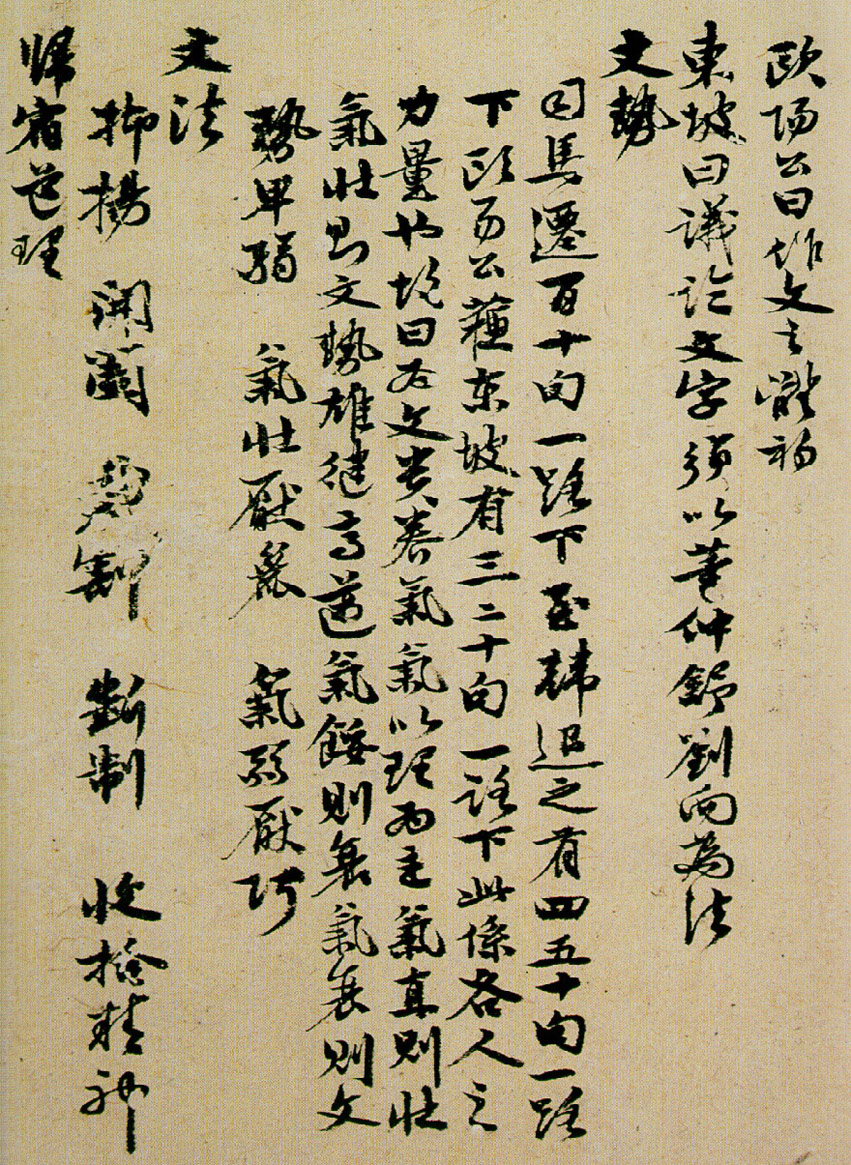 歐陽公曰作文之體初
東坡曰議論文字須以董仲舒劉向為法
文勢
司馬遷百十句一路下至韓退之有四五十句一路
下歐陽公蘓东坡有三二十句一路下此係各人之
力量也 曰為文貴養氣氣以理為主氣直則壯
氣壯則文勢雄健高邁氣餒則衰氣衰則文
勢卑弱 氣壯厭麁 氣弱厭巧
文法
抑揚 開闔 斷制 收拾精神
歸宿芭理